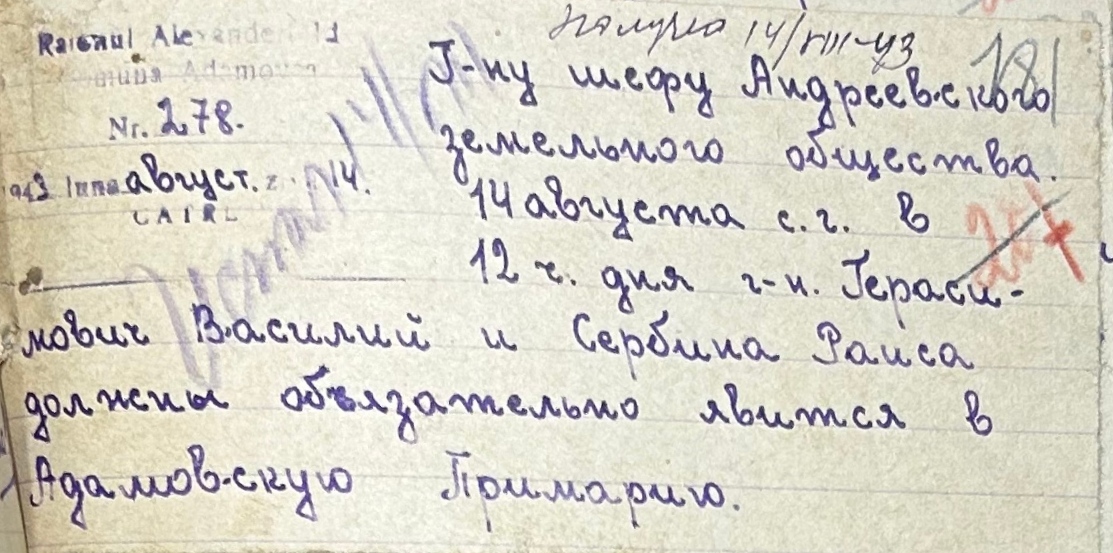 Raionul Alexanderfeld
Comuna Adamovca
Nr. 278.
1943 Luna август. z. 14.
CAIRL
получено 14/VIII-43
181
Г-ну шефу Андреевского
земельного общества.
14 августа с. г. в
12 ч. дня г-н. Гераси-
мович Василий и Сербина Раиса
должны объязательно явится в
Адамовскую Примарию.